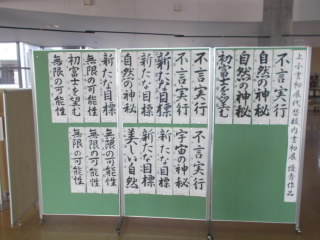 書初展代替校内書初展 優秀作品
不言実行
自然の神秘
自然の神秘
初富士を望む
不言実行
不言実行
新たな目標
新たな目標
自然の神秘
不言実行
宇宙の神秘
新たな目標
新たな目標
美しい自然
新たな目標
無限の可能性
初富士を望む
無限の可能性
無限の可能性
無限の可能性
無限の可能性